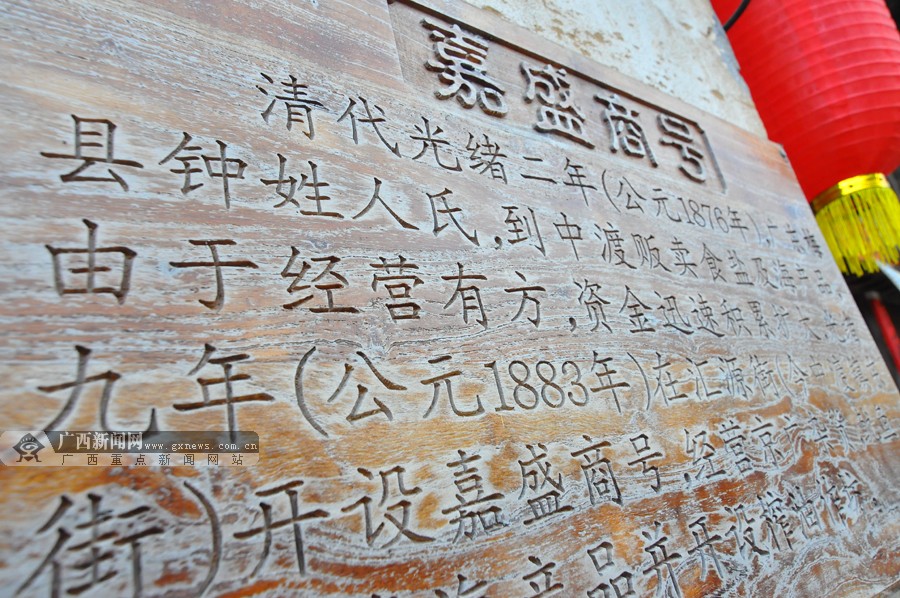 嘉盛商号
清代光绪二年(公元1876年),广东
县钟姓人氏,到中渡贩卖食盐及海产
由于经营有方,资金迅速积累
九年(公元1883年)在汇源街(今
街)开设嘉盛商号,经营京
产品并开设榨油作坊。
广西新闻网 www.gxnews.com.cn
广西重点新闻网站